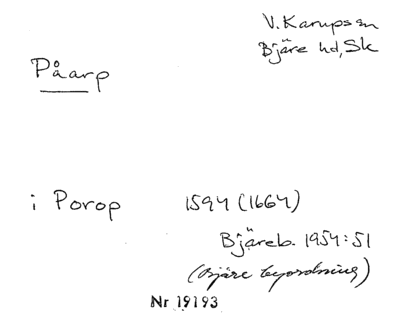 V. Karups sn
Bjäre hd, Sk
Påarp
i Porop 1594 (1664)
Bjäreb. 1954:51
(Bjäre byordning)
Nr 19193